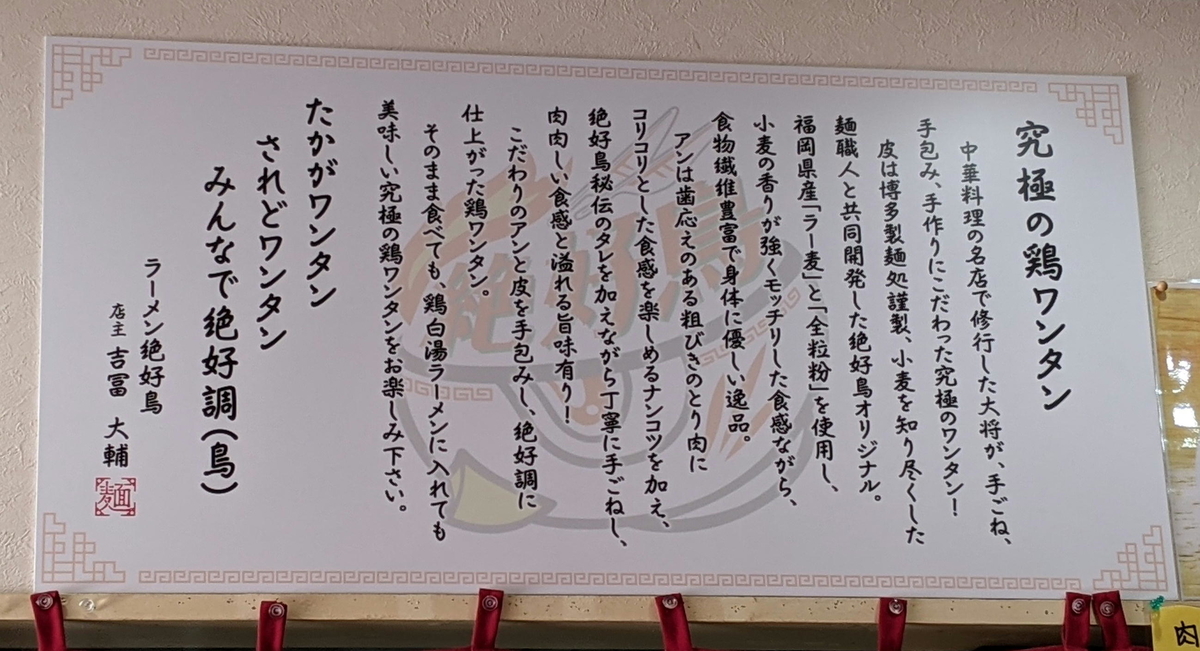 究極の鶏ワンタン
中華料理の名店で修行した大将が、手ごね、
手包み、手作りにこだわった究極のワンタン!
皮は博多製麺処謹製、小麦を知り尽くした
麺職人と共同開発した絶好鳥オリジナル。
福岡県産「ラー麦」と「全粒粉」を使用し、
小麦の香りが強くモッチリした食感ながら、
食物繊維豊富で身体に優しい逸品。
アンは歯応えのある粗びきのとり肉に
コリコリとした食感を楽しめるナンコツを加え、
絶好鳥秘伝のタレを加えながら丁寧に手ごねし、
肉肉しい食感と溢れる旨味有り!
こだわりのアンと皮を手包みし、絶好調に
仕上がった鶏ワンタン。
そのまま食べても、鶏白湯ラーメンに入れても
美味しい究極の鶏ワンタンをお楽しみ下さい。
たかがワンタン
されどワンタン
みんなで絶好調(鳥)
ラーメン絶好鳥
店主 吉冨 大輔
麺
絶好鳥
肉